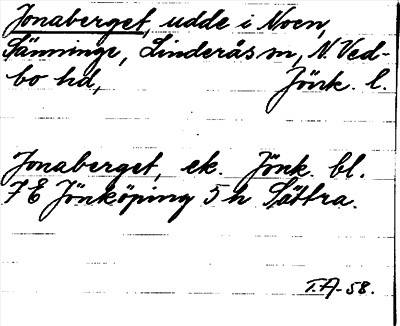 Jonaberget, udde i Noen,
Sänninge, Linderås sn, N. Ved-
bo hd, Jönk. l.
Jonaberget, ek. Jönk. bl.
7 E Jönköping 5 h Sättra.
T.A-58.